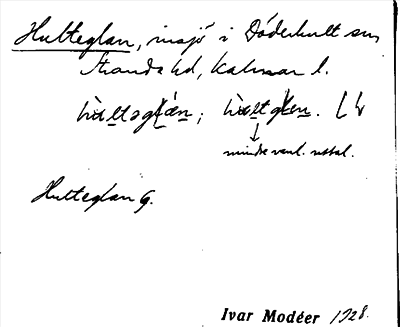 Hulteglan, insjö i Döderhult sn,
Stranda hd, Kalmar l.
hùltəglán; hùltglən.
mindre vanl. uttal.
Hulteglan G.
Ivar Modéer 1928.